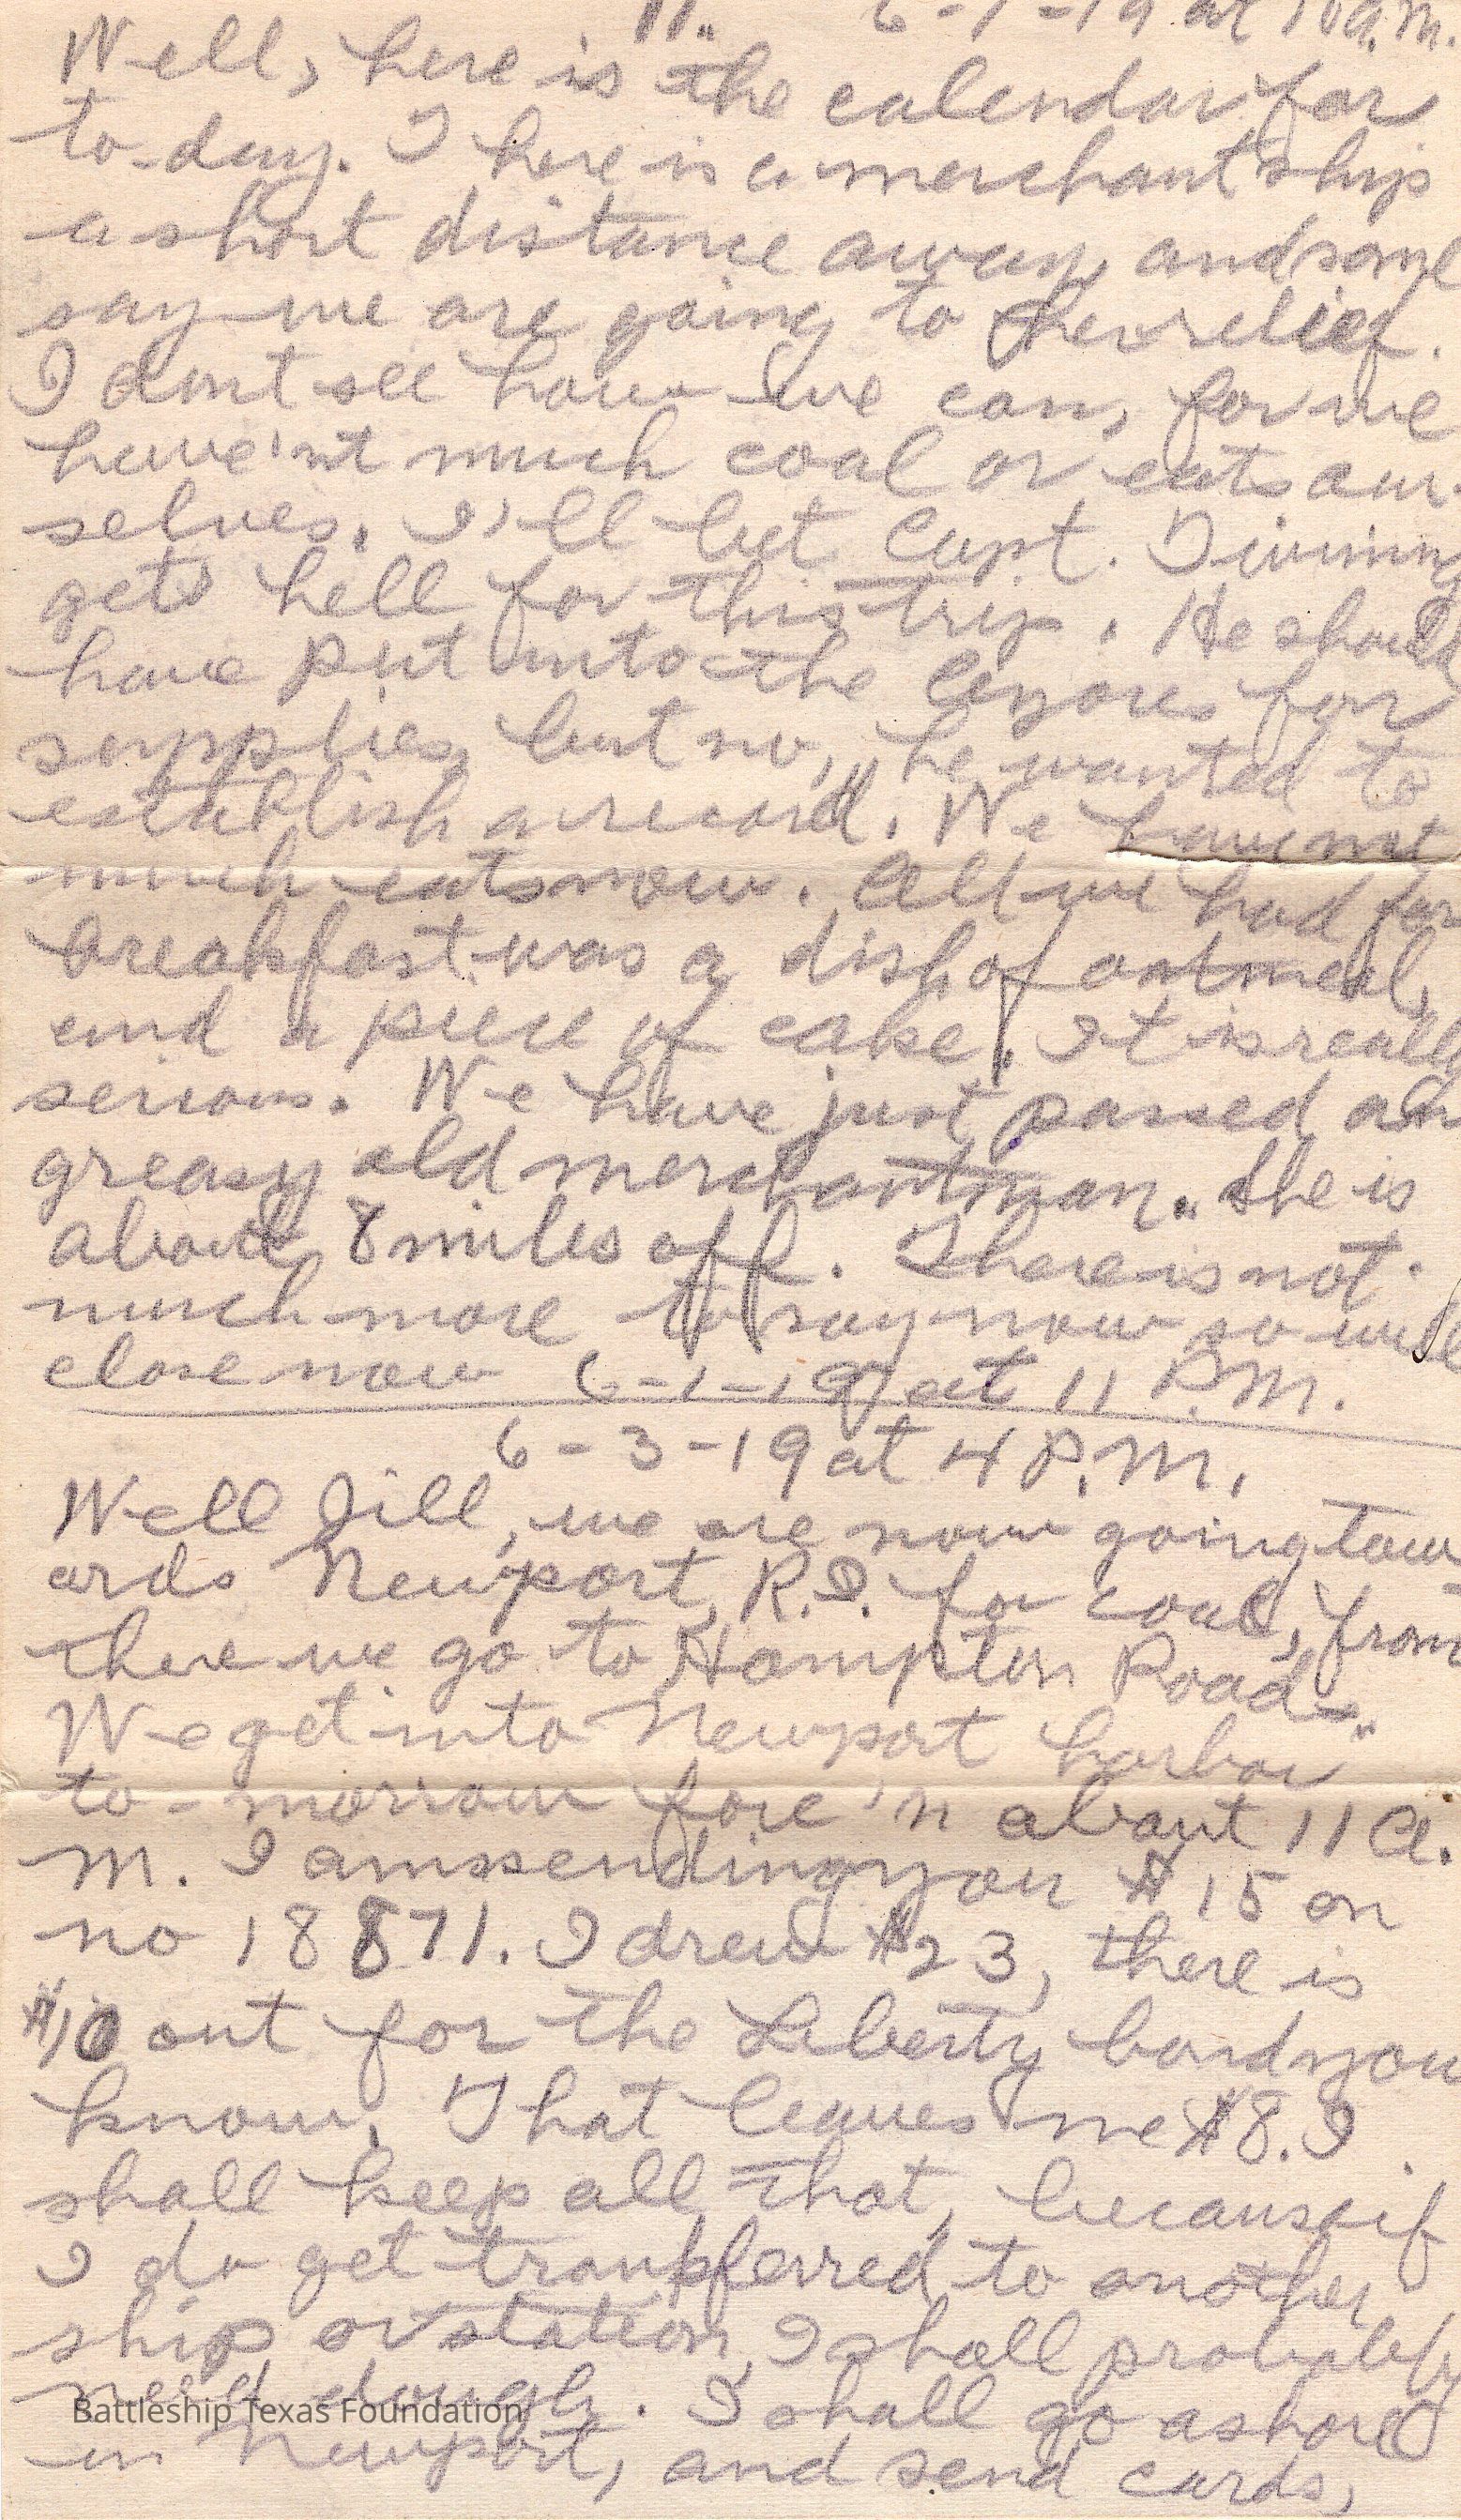 11. 6-1-19 at 10 A.M.
Well, here is the calendar for
to-day. There is a merchant ship
a short distance away, and some
say we are going to her relief.
I dont see how we can, for we
have'nt much coal or eats our-
selves. I'll bet Capt. Divining
gets hell for this trip. He should
have put into the Azores for
supplies, but no, he wanted to
establish a record. We have not
much eats now. All we had for
breakfast was a dish of oatmeal,
and a piece of cake. It is really
serious. We have just passed an
greasy old merchantman. She is
about 8 miles off. There is not
much more to say now so will
close now 6-1-19 at 11 P.M.
6-3-19 at 4 P.M.
Well Jill, we are now going tow
ards Newport, R.I. for coal, from
there we go to Hampton Roads.
We get into Newport harbor
to-morrow fore'n about 11 A.
M. I am sending you $15 on
no 18871. I drew $23, there is
$10 out for the Liberty bond you
know. That leaves me $8. I
shall keep all that, because if
I do get transferred to another
ship or station, I shall probably
need dough. I shall go ashore
in Newport, and send cards,
Battleship Texas Foundation